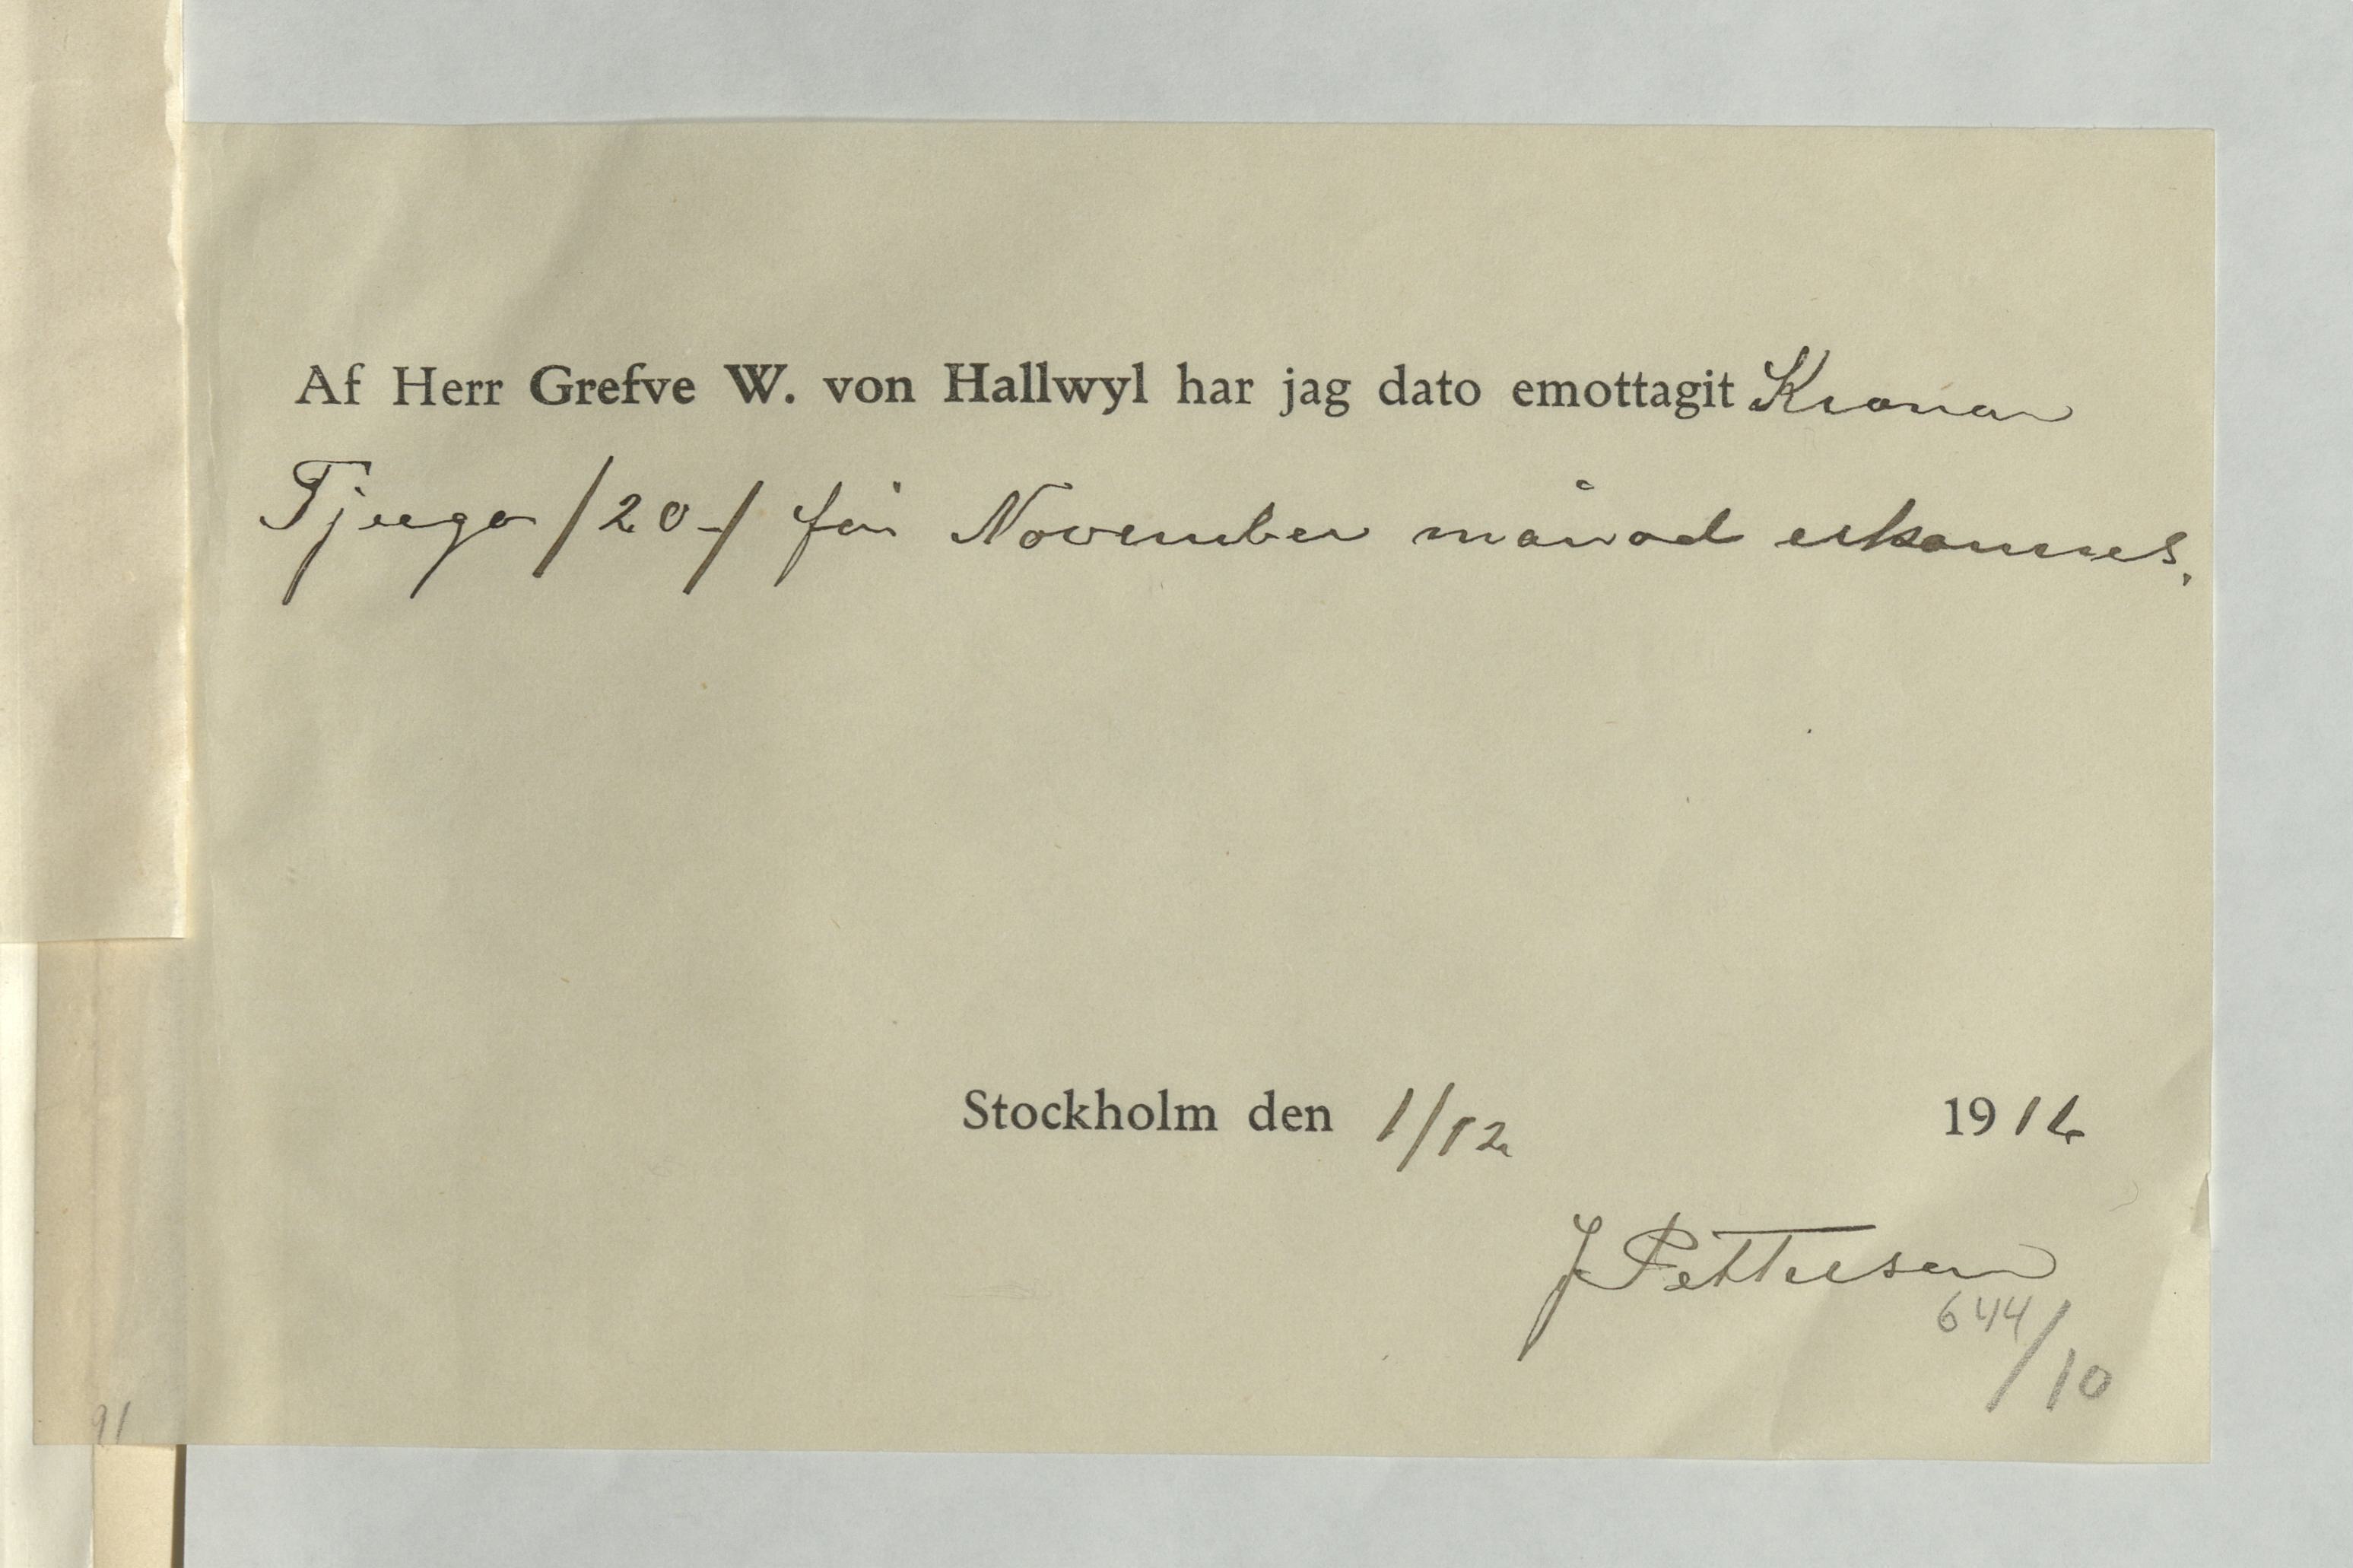 Af Herr Grefve W. von Hallwyl har jag dato emottagit Kronor
Tjugo /20-/ för November månad erkännes.
Stockholm den 1/12 1916
J Petterson
644/10
91